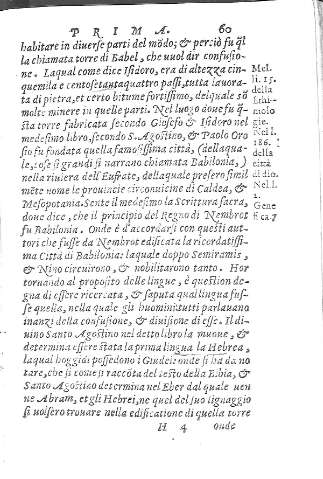 PRIMA. 60
habitare in diuerse parti del mõdo; & perciò fu q̃l
la chiamata torre di Babel, che uuol dir confusio
ne. Laqual come dice Isidoro, era di altezza cin-
quemila e centosetantaquattro passi, tutta lauora
ta di pietra, et certo bitume fortissimo, delquale sõ
molte minere in quelle parti. Nel luogo doue fu q̃-
sta torre fabricata secondo Gioseso & Isidoro nel
medesimo libro, secondo S. Agostino, & Paolo Oro
sio fu fondata quella famosissima città, (dellaqua-
le, cose si grandi si narrano chiamata Babilonia,)
nella riuiera dell'Eufrate, dellaquale presero simil
mẽte nome le prouincie circonuicine di Caldea, &
Mesopotania. Sente il medesimo la Scrittura sacra,
doue dice, che il principio del Regno di Nembrot
fu Babilonia. Onde è d'accordarsi con questi au-
tori che fusse da Nembrot edificata la ricordatissi-
ma Città di Babilonia: laquale doppo Semiramis,
& Nino circuirono, & nobilitarono tanto. Hor
tornando al proposito delle lingue, è question de-
gna di essere ricercata, & saputa qual lingua fus-
se quella, nella quale gli huomini tutti parlauano
inanzi della confusione, & diuisione di esse. Il di-
uino Santo Agostino nel detto libro la muoue, &
determina essere stata la prima lingua la Hebrea,
laqual hoggidi possedono i Giudei: onde si ha da no
tare, che si come si raccõta del testo della Bibia, &
Santo Agostino determina nel Eber dal quale uen
ne Abram, et gli Hebrei, ne quel del suo lignaggio
si uoisero trouare nella edificatione di quella torre
H 4 onde
Nel
li. 15.
della
Ethi-
molo
gie.
Nel l.
186.
della
città
di dio.
Nel l.
2.
Gene
si ca. 7